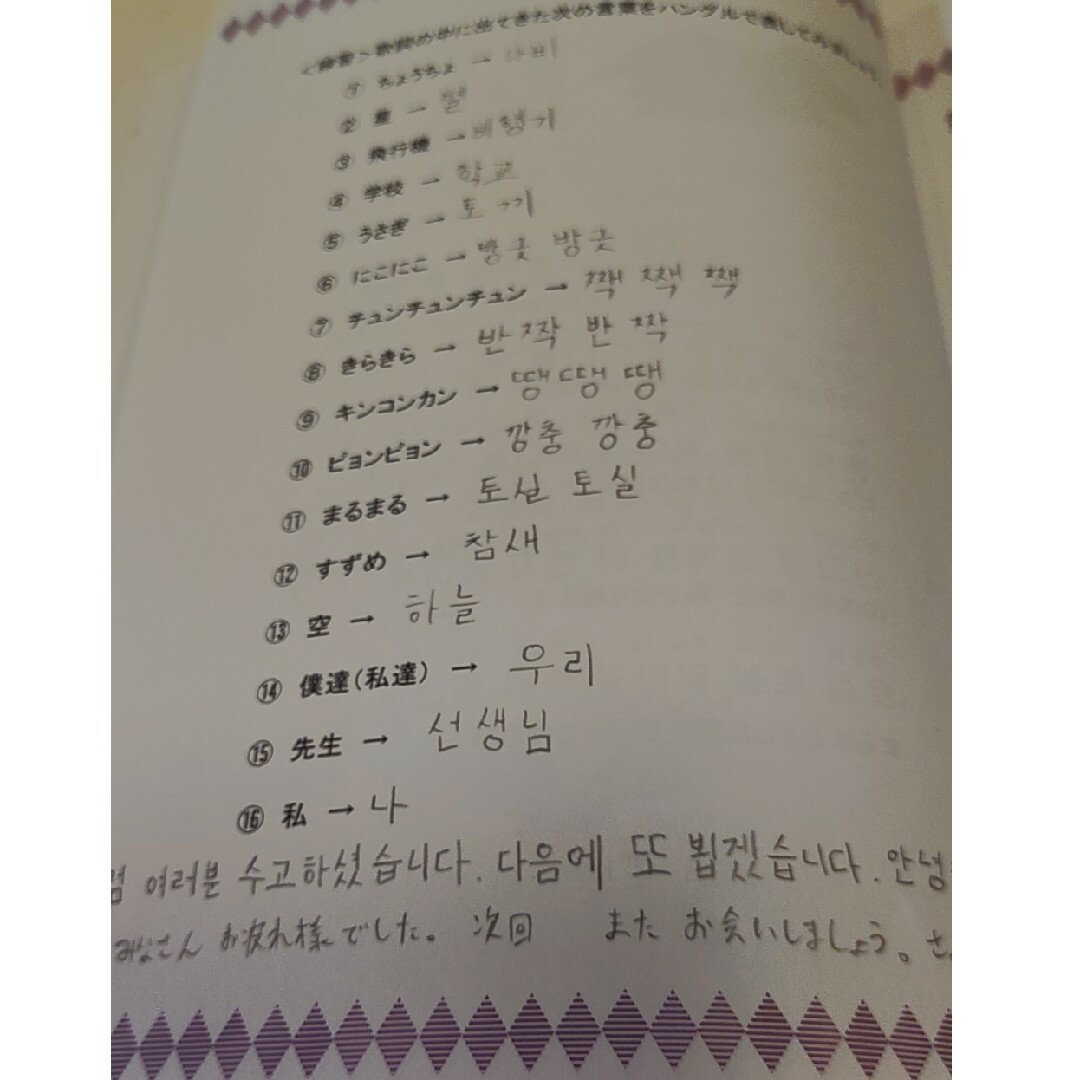 <練習> 歌詞の中に出てきた次の言葉をハングルで表してみましょう。
① ちょうちょ → 나비
② 星 → 별
③ 飛行機 → 비행기
④ 学校 → 학교
⑤ うさぎ → 토끼
⑥ にこにこ → 방긋 방긋
⑦ チュンチュンチュン → 짹 짹 짹
⑧ きらきら → 반짝 반짝
⑨ キンコンカン → 땡 땡 땡
⑩ ピョンピョン → 깡충 깡충
⑪ まるまる → 토실 토실
⑫ すずめ → 참새
⑬ 空 → 하늘
⑭ 僕達(私達) → 우리
⑮ 先生 → 선생님
⑯ 私 → 나
여러분 수고하셨습니다. 다음에 또 뵙겠습니다. 안녕
みなさん お疲れ様でした。 次回 また お会いしましょう。